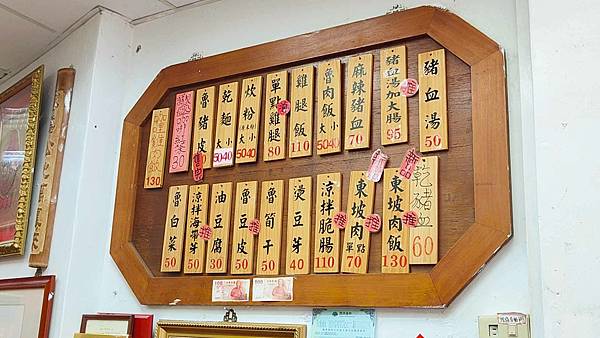 豬血湯 50
豬血湯加大腸 95
麻辣豬血 70
魯肉飯 大 小 50 40
雞腿飯 110
單點雞腿 80
炊粉 大 小 50 40
乾麵 大 小 50 40
魯豬皮
30
130
乾豬血 60
東坡肉飯 130
東坡肉 單點 70
涼拌脆腸 110
燙豆芽 40
魯筍干 50
魯豆皮 50
油豆腐 30
涼拌海帶芽 50
魯白菜 50
推
推
推
推
推